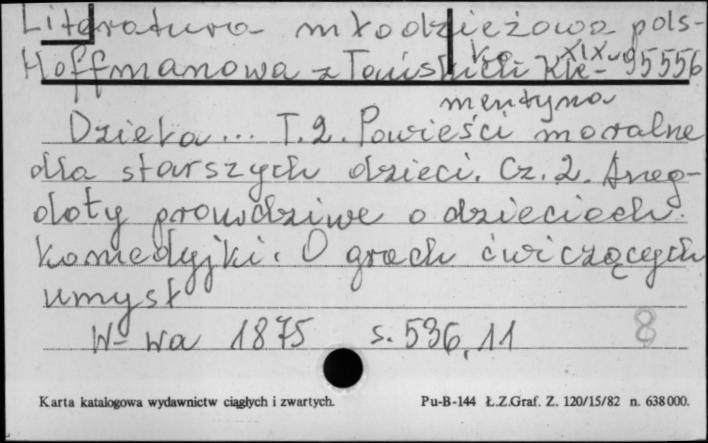 Literatura młodzieżowa pols-
ka XIX w.
Hoffmanowa z Tańskich Kle- 95556
mentyna
Dzieła... T.2. Powieści moralne
dla starszych dzieci. Cz. 2. Aneg-
doty prawdziwe o dzieciach.
Komedyjki. O grach ćwiczących
umysł
W-wa 1875 s. 536, 11 8
Karta katalogowa wydawnictw ciągłych i zwartych. Pu-B-144 Ł.Z.Graf. Z. 120/15/82 n. 638000.